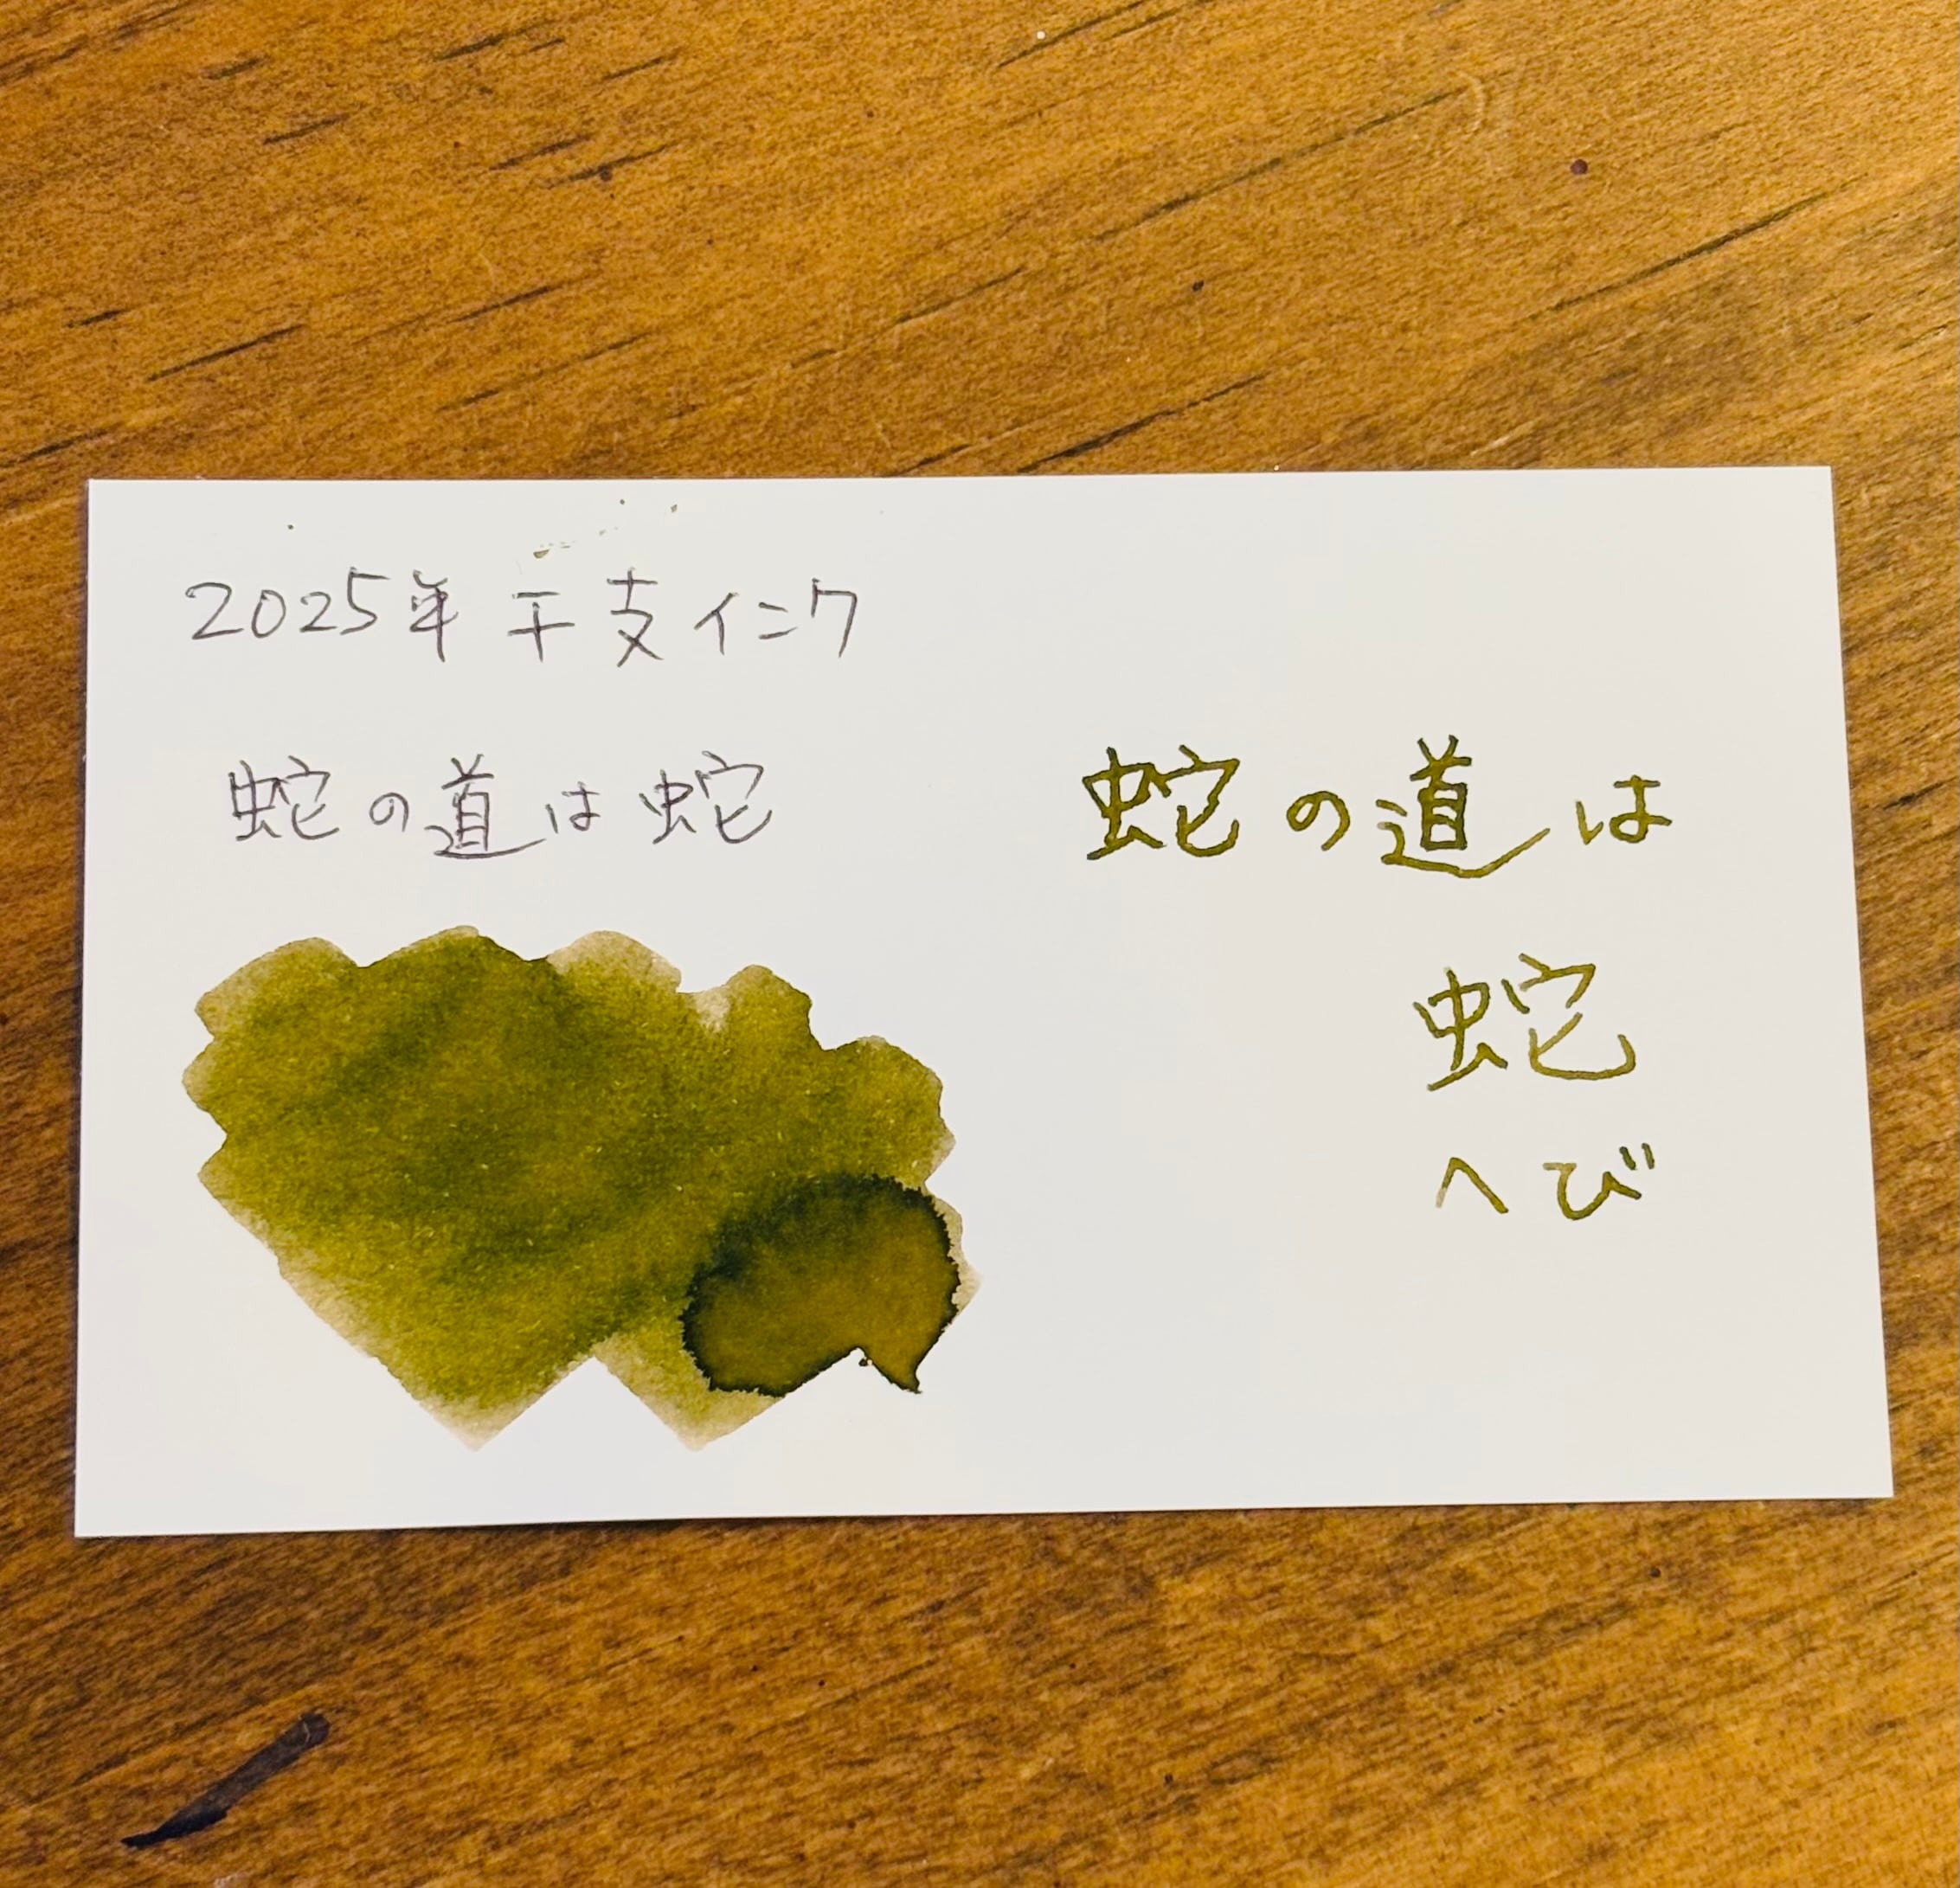 2025年 干支インク
蛇の道は蛇
蛇の道は
蛇
へび